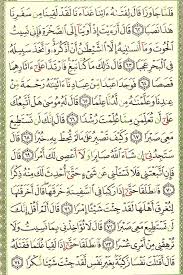 فَلَمَّا جَاوَزَا قَالَ لِفَتَىٰهُ ءَاتِنَا غَدَآءَنَا لَقَدْ لَقِينَا مِن سَفَرِنَا
هَٰذَا نَصَبًا ٦٢ قَالَ أَرَءَيْتَ إِذْ أَوَيْنَآ إِلَى ٱلصَّخْرَةِ فَإِنِّي نَسِيتُ
ٱلْحُوتَ وَمَآ أَنسَىٰنِيهُ إِلَّا ٱلشَّيْطَٰنُ أَنْ أَذْكُرَهُۥ وَٱتَّخَذَ سَبِيلَهُۥ
فِي ٱلْبَحْرِ عَجَبًا ٦٣ قَالَ ذَٰلِكَ مَا كُنَّا نَبْغِ فَٱرْتَدَّا عَلَىٰٓ ءَاثَارِهِمَا
قَصَصًا ٦٤ فَوَجَدَا عَبْدًا مِّنْ عِبَادِنَآ ءَاتَيْنَٰهُ رَحْمَةً مِّنْ
عِندِنَا وَعَلَّمْنَٰهُ مِن لَّدُنَّا عِلْمًا ٦٥ قَالَ لَهُۥ مُوسَىٰ هَلْ أَتَّبِعُكَ
عَلَىٰٓ أَن تُعَلِّمَنِ مِمَّا عُلِّمْتَ رُشْدًا ٦٦ قَالَ إِنَّكَ لَن تَسْتَطِيعَ
مَعِيَ صَبْرًا ٦٧ وَكَيْفَ تَصْبِرُ عَلَىٰ مَا لَمْ تُحِطْ بِهِۦ خُبْرًا ٦٨ قَالَ
سَتَجِدُنِيٓ إِن شَآءَ ٱللَّهُ صَابِرًا وَلَآ أَعْصِي لَكَ أَمْرًا ٦٩
قَالَ فَإِنِ ٱتَّبَعْتَنِي فَلَا تَسْـَٔلْنِي عَن شَيْءٍ حَتَّىٰٓ أُحْدِثَ لَكَ مِنْهُ
ذِكْرًا ٧٠ فَٱنطَلَقَا حَتَّىٰٓ إِذَا رَكِبَا فِي ٱلسَّفِينَةِ خَرَقَهَا قَالَ أَخَرَقْتَهَا
لِتُغْرِقَ أَهْلَهَا لَقَدْ جِئْتَ شَيْـًٔا إِمْرًا ٧١ قَالَ أَلَمْ أَقُلْ إِنَّكَ
لَن تَسْتَطِيعَ مَعِيَ صَبْرًا ٧٢ قَالَ لَا تُؤَاخِذْنِي بِمَا نَسِيتُ وَلَا
تُرْهِقْنِي مِنْ أَمْرِي عُسْرًا ٧٣ فَٱنطَلَقَا حَتَّىٰٓ إِذَا لَقِيَا غُلَٰمًا فَقَتَلَهُۥ
قَالَ أَقَتَلْتَ نَفْسًا زَكِيَّةًۢ بِغَيْرِ نَفْسٍ لَّقَدْ جِئْتَ شَيْـًٔا نُّكْرًا ٧٤